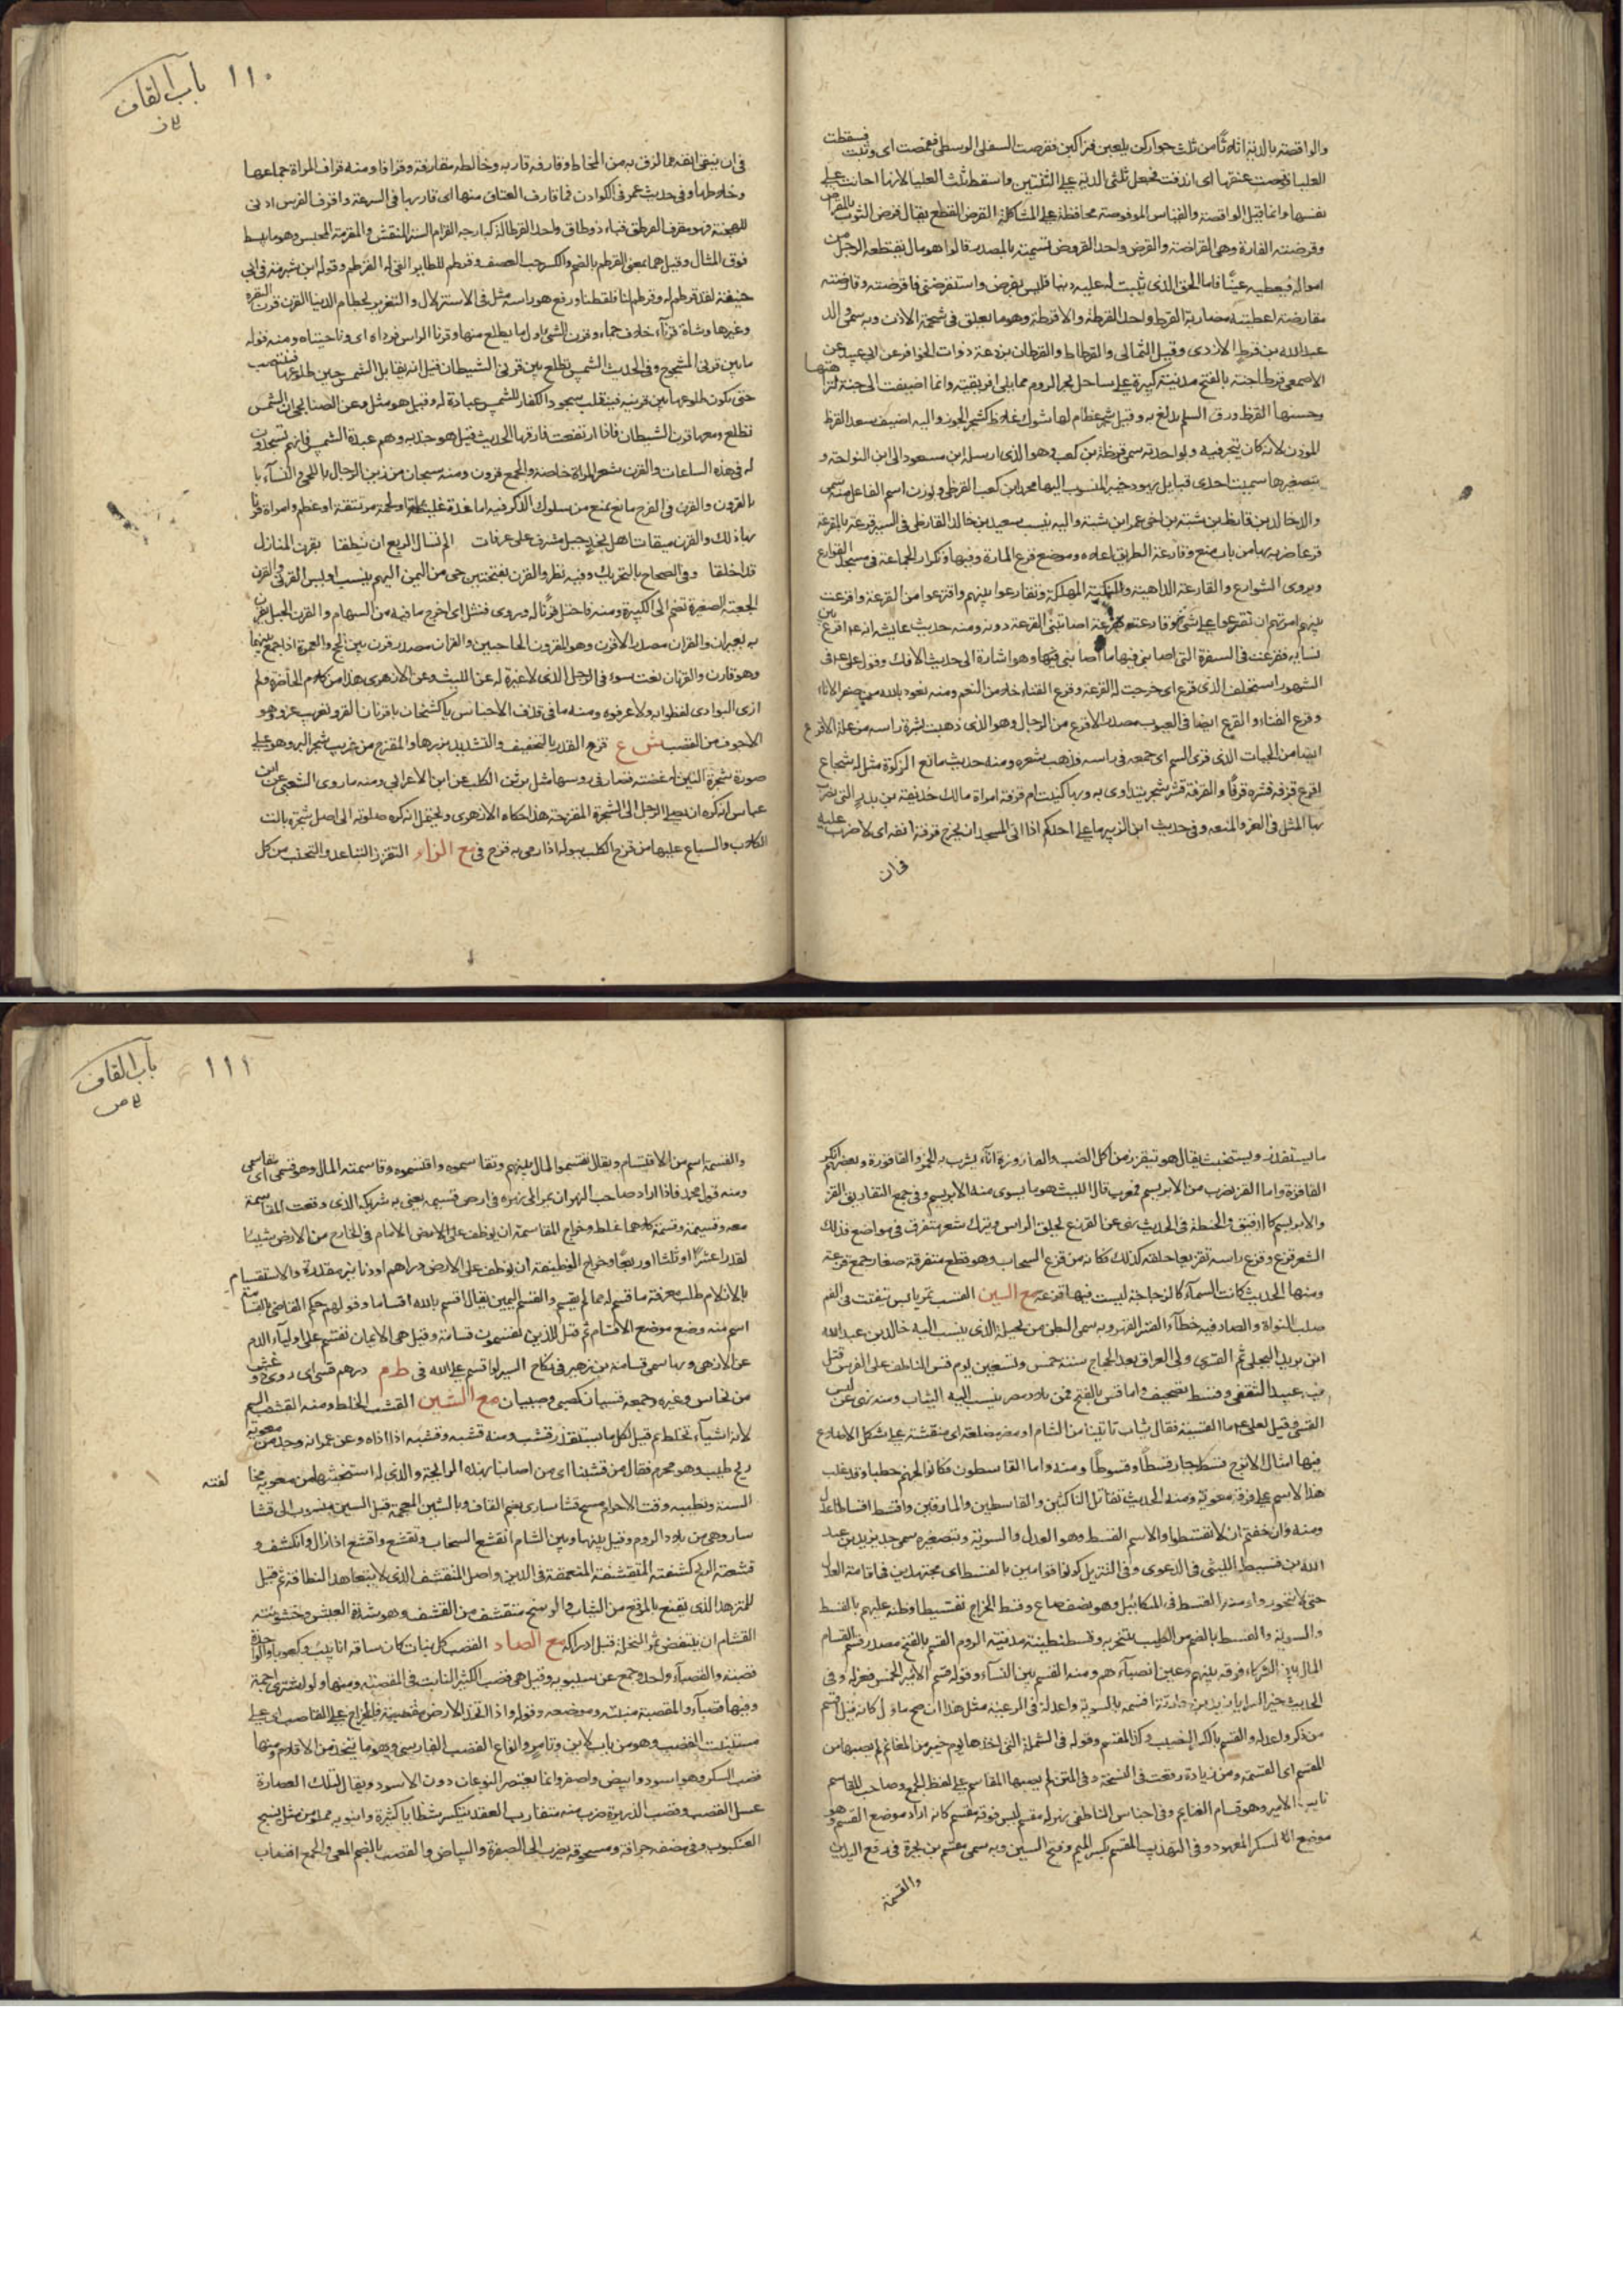 والواقصة بالدية اثلاثا من ثلث جوار كن يلعبن فتراكبن فقرصت السفلى الوسطى فقمصت اى وثبت فسقطت
العليا فوقصت عنقها اى اندقت فجعل ثلثى الدية على الثنتين واسقط ثلث العليا لانها اعانت على
نفسها وانما قيل الواقصة والقياس الموقوصة محافظة على المشاكلة القرض القطع يقال قرض الثوب بالمقراض
وقرضته الفارة وهى القراضة والقرض واحد القروض تسمية بالمصدر قالوا هو مال يقتطعه الرجل من
امواله فيعطيه عينا فاما الحق الذى يثبت له عليه دينا فليس بقرض واستقرضنى فاقرضته وقارضته
مقارضة اعطيته مضاربة القرط واحد القرطة والاقرطة وهو ما يعلق فى شحمة الاذن وبه سمى والد
عبدالله بن قرط الازدى وقيل الثمالى والقرطاط والقرطان برذعة ذوات الحوافر عن ابى عبيد عن
الاصمعى قرطاجنة بالفتح مدينة كبيرة على ساحل بحر الروم مما يلى افريقية وانما اضيفت الى جنة لنزاهتها
وحسنها القرظ ورق السلم يدبغ به وقيل شجر عظام لها شوك غلاظ كشجر الجوز واليه اضيف سعد القرظ
الموذن لانه كان يتجر فيه وبواحدته سمى قرظة بن كعب وهو الذى ارسله ابن مسعود الى ابن النواحة و
بتصغيرها سميت احدى قبايل يهود خيبر المنسوب اليها محمد ابن كعب القرظى وبوزن اسم الفاعل منه سمى
والد خالد بن قارظ بن شيبة بن اخى عمر ابن شيبة واليه ينسب سعيد بن خالد القارظى فى السير قرعه بالمقرعة
قرعا ضربه بها من باب منع وقارعة الطريق اعلاه وموضع قرع المارة وفيها ذكر الجماعة فى مسجد القوارع
ويروى الشوارع والقارعة الداهية والنكبة المهلكة وتقارعوا بينهم واقترعوا من القرعة واقرعت
بينهم امرتهم ان يقترعوا على شئ وقارعته فقرعته اصابتنى القرعة دونه ومنه حديث عايشه انه عم اقرع بين
نسايه فقرعت فى السفرة التى اصابنى فيها ما اصابنى فيها وهو اشارة الى حديث الافك وقول على عم فى
الشهود استحلف الذى قرع اى خرجت له القرعة وقرع الفناء خلا من النعم ومنه نعوذ بالله من صفر الاناء
وقرع الفناء والقرع ايضا فى العيوب مصدر الاقرع من الرجال وهو الذى ذهبت بشرة راسه من علة الاقرع
ايضا من الحيات الذى قرى السم اى جمعه فى راسه فذهب بشعره ومنه حديث مانع الزكوة مثل له شجاع
اقرع قرفه قشره قرفا والقرفة قشر شجر يتداوى به وبها كنيت ام قرفة امراة مالك بن حذيفة بن بدر التى يضرب
بها المثل فى العز والمنعه وفى حديث ابن الزبير ما على احدكم اذا اتى المسجد ان يخرج قرفة انفه اى لا ضرب عليه
فى ان
باب القاف ١١٠
ق ز
فى ان ينقى انفه مما لزق به من المخاط وقارفه قاربه وخالطه مقارفة وقرافا ومنه قراف المراة جماعها
وخلاطها وفى حديث عمر فى الكوادن فما قارف العتاق منها اى قاربها فى السرعة واقرف الفرس ادنى
للهجنة فهو مقرف القرطق قباء ذو طاق واحد القرطالة كبارجه القرام الستر المنقش والمقرمة المحبس وهو ما يبسط
فوق المثال وقيل هما بمعنى القرطم بالضم والكسر حب العصفر وقرطم للطاير القى له القرطم وقوله ابن شبرمة فى ابى
حنيفة لقد قرطم له وقرطم لنا فلقطنا ورفع هو راسه مثل فى الاستزلال والتغرير بحطام الدنيا القرن قرن البقرة
وغيرها وشاة قرناء خلاف جماء وقرن الشئ اول ما يطلع منها وقرنا الراس فوداه اى ناحيتاه ومنه قوله
ما بين قرنى المشجوج وفى الحديث الشمس تطلع بين قرنى الشيطان قيل انه يقابل الشمس حين طلوعها فينتصب
حتى يكون طلوعها بين قرنيه فينقلب سجود الكفار للشمس عبادة له وقيل هو مثل وعن الصنابحى ان الشمس
تطلع ومعها قرن الشيطان فاذا ارتفعت فارقها الحديث قيل هو حزبه وهم عبدة الشمس فانهم يسجدون
له فى هذه الساعات والقرن شعر المراة خاصة والجمع قرون ومنه سبحان من زين الرجال باللحى والنساء با
بالقرون والقرن فى الفرج مانع يمنع من سلوك الذكر فيه اما غدة غليظة او لحمة مرتتقة او عظم وامراة قرنا
بها ذلك والقرن ميقات اهل نجد جبل مشرف على عرفات الم تسال الربع ان ينطقا بقرن المنازل
قد اخلقا وفى الصحاح بالتحريك وفيه نظر والقرن بفتحتين حى من اليمن اليهم ينسب اويس القرنى والقرن
الجعبة الصغيرة تضم الى الكبيرة ومنه فاخترط قرنا له ويروى فنثل اى اخرج ما فيه من السهام والقرن الحبل يقرن
به بعيران والقران مصدر الاقرن وهو المقرون الحاجبين والقران مصدر قرن بين الحج والعمرة اذا جمع بينهما
وهو قارن والقرنان نعت سوء فى الرجل الذى لا غيرة له عن الليث وعن الازهرى هذا من كلام الحاضرة ولم
ارى البوادى لفظوا به ولا عرفوه ومنه ما فى قذف الاجناس ياكشخان ياقرنان القرو تعريب غرو هو
الاجوف من القصب ش ع قزح القدر بالتخفيف والتشديد بزرها والمقزح من غريب شجر البر وهو على
صورة شجرة التين له غصنة قصار فى روسها مثل برثن الكلب عن ابن الاعرابى ومنه ما روى الشعبى عن ابن
عباس انه كره ان يصلى الرجل الى الشجرة المقزحة هذا حكاه الازهرى ويحتمل انه كره صلوته الى اصل شجرة بالت
الكلاب والسباع عليها من قزح الكلب ببوله اذا رمى به قزح فى مع الزاء التقزز التباعد والتجنب من كل
ما يستقذر ويستخبث يقال هو يتقزز من اكل الضب والقازوزة اناء يشرب به الخمر والقاقوزة وبعضهم انكر
القاقزة واما القز لضرب من الابريسم فمعرب قال الليث هو ما يسوى منه الابريسم وفى جمع التفاريق القز
والابريسم كالدقيق والحنطة فى الحديث نهى عن القزع يحلق الراس ويترك شعر متفرق فى مواضع فذلك
الشعر قزع وقزع راسه تقزيعا حلقه كذلك فكانه من قزع السحاب وهو قطع متفرقة صغار جمع قزعة
ومنها الحديث كانت السماء كالزجاجة ليست فيها قزعة مع السين القسب تمر يابس يتفتت فى الفم
صلب النواة والصاد فيه خطاء القسر القهر وبه سمى البطن من بجيلة الذى ينسب اليه خالد بن عبدالله
ابن يزيد البجلى ثم القسرى ولى العراق بعد الحجاج سنة خمس وتسعين يوم قس الناطف على الفرس قتل
فيه عبيد الثقفى وقسط تصحيف واما قس بالفتح فمن بلاد مصر ينسب اليه الثياب ومنه نهى عن لبس
القسى وقيل لعلى عم ما القسية فقال ثياب تاتينا من الشام او مصر مضلعة اى منقشة على شكل الاضلاع
فيها امثال الاترج قسط جار قسطا وقسوطا ومنه واما القاسطون فكانوا لجهنم حطبا وقد غلب
هذا الاسم على فرقة معوية ومنه الحديث تقاتل الناكثين والقاسطين والمارقين واقسط اقساطا عدل
ومنه وان خفتم ان لا تقسطوا والاسم القسط وهو العدل والسوية وبتصغيره سمى جد يزيد بن عبد
الله بن قسيط الليثى فى الدعوى وفى التنزيل كونوا قوامين بالقسط اى مجتهدين فى اقامة العدل
حتى لا تجوروا واد منه القسط فى المكاييل وهو نصف صاع وقسط الخراج تقسيطا وظفه عليهم بالقسط
والسوية والقسط بالضم من الطيب يتبخر به وقسطنطينية مدينة الروم القسم بالفتح مصدر قسم القسام
المال بين الشركاء فرقه بينهم وعين انصباءهم ومنه القسم بين النساء وقوله قسم الامير الخمس فعزله وفى
الحديث خير السرايا زيد بن حارثة اقسمه بالسوية واعدله فى الرعية مثل هذا ان صح ماول كانه قيل اقسم
من ذكر واعدله والقسم بالكسر النصيب وكذا المقسم وقوله فى الشملة التى اخذها يوم خيبر من المغانم لم يصبها من
المقسم اى القسمة ومن زيادة وقعت فى النسخة وفى المتن لم يصبها المقاسم على لفظ الجمع وصاحب المقاسم
نايب الامير وهو قسام الغنايم وفى اجناس الناطفى بهوله مقسم ليس فوقه مقسم كانه اراد موضع القسم وهو
موضع الذ لسكر المعهود وفى التهذيب المقسم بكسر الميم وفتح السين وبه سمى مقسم بن بجرة فى رفع اليدين
والقسمة
باب القاف ١١١
ق ص
والقسمة اسم من الاقتسام ويقال تقسموا المال بينهم وتقاسموه واقتسموه وقاسمته المال وهو قسيمى اى مقاسمى
ومنه قول محمد فاذا اراد صاحب النهر ان يمر الى نهره فى ارض قسيمه يعنى به شريكه الذى وقعت المقاسمة
معه وقسيمة وقسمة كلاهما غلط وخراج المقاسمة ان يوظف على الارض الامام فى الخارج من الارض شيئا
لقدر اعشرا او ثلثا او ربعا وخراج الوظيفة ان يوظف على الارض دراهم او دنانير مقدرة والاستقسام
بالازلام طلب معرفة ما قسم له مما لم يقسم والقسم اليمين يقال اقسم بالله اقساما وقولهم حكم القاضى بالقسامة
اسم منه وضع موضع الاقسام ثم قيل للذين يقسمون قسامة وقيل هى الايمان تقسم على اولياء الدم
عن الازهرى وبها سمى قسامة بن زهير فى نكاح السير لو اقسم على الله فى طرم درهم قسى اى ردى وغش
من نحاس وغيره وجمعه قسيان كصبى وصبيان مع الشين القشب الخلط ومنه القشب السم
لانه اشياء تخلط ثم قيل لكل ما يستقذر قشب ومنه قشبه وقشبه اذا اذاه وعن عمر انه وجد من معوية
ريح طيب وهو محرم فقال من قشبنا اى من اصابنا بهذه الرايحة والذى له استخبثها من معوية مخا لفته
السنة وتطييبه وقت الاحرام مسح قشاسارى بضم القاف وبالشين المعجمة قيل السين منسوب الى قشا
سار وهى من بلاد الروم وقيل بينها وبين الشام انقشع السحاب وتقشع واقشع اذا زال وانكشف و
قشعته الريح كشفته المتقشفة المتعمقة فى الدين واصل المتقشف الذى لا يتعاهد النظافة ثم قيل
للمتزهد الذى يقنع بالمرقع من الثياب والوسخ متقشف من القشف وهو شدة العيش وخشونته
القشام ان ينتفض ثمر النخلة قبل ادراكه مع الصاد القصب كل نبات كان ساقه انابيب وكعوبا والواحدة
قصبة والقصباء واحد وجمع عن سيبويه وقيل هى قصب الكثير النابت فى المقصبة ومنها ولو اشترى اجمة
وفيها قصباء والمقصبة منبته وموضعه وقوله واذا اتخذ الارض مقصبة فالخراج على القاصب اى على
مستنبت القصب وهو من باب لابن وتامر وانواع القصب الفارسى وهو ما يتخذ من الاقلام ومنها
قصب السكر وهو اسود وابيض واصفر وانما يعتصر النوعان دون الاسود ويقال لتلك العصارة
عسل القصب وقصب الذريرة ضرب منه متقارب العقد يتكسر شظايا كثيرة وانبوبه مملو من مثل نسج
العنكبوت وفى مضغه حرافة ومسحوقه يضرب الى الصفرة والبياض والقصب بالضم المعى والجمع اقصاب